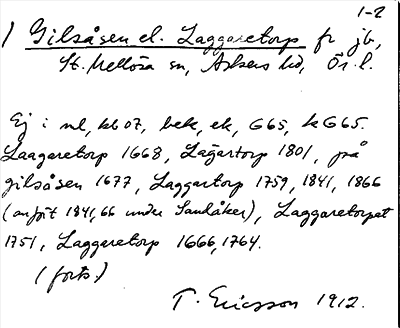 1-2
1 Gilsåsen el. Laggaretorp fr jb,
St. Mellösa sn, Askers hd, Ör. l.
Ej i ml, kb 07, bek, ek, G65, kG65.
Laagaretorp 1668, Lagartorp 1801, på
gilsåsen 1677, Laggartorp 1759, 1841, 1866
(anfört 1841, 66 under Sandåker), Laggaretorpet
1751, Laggaretorp 1666, 1764.
(forts.)
T. Ericsson 1912.